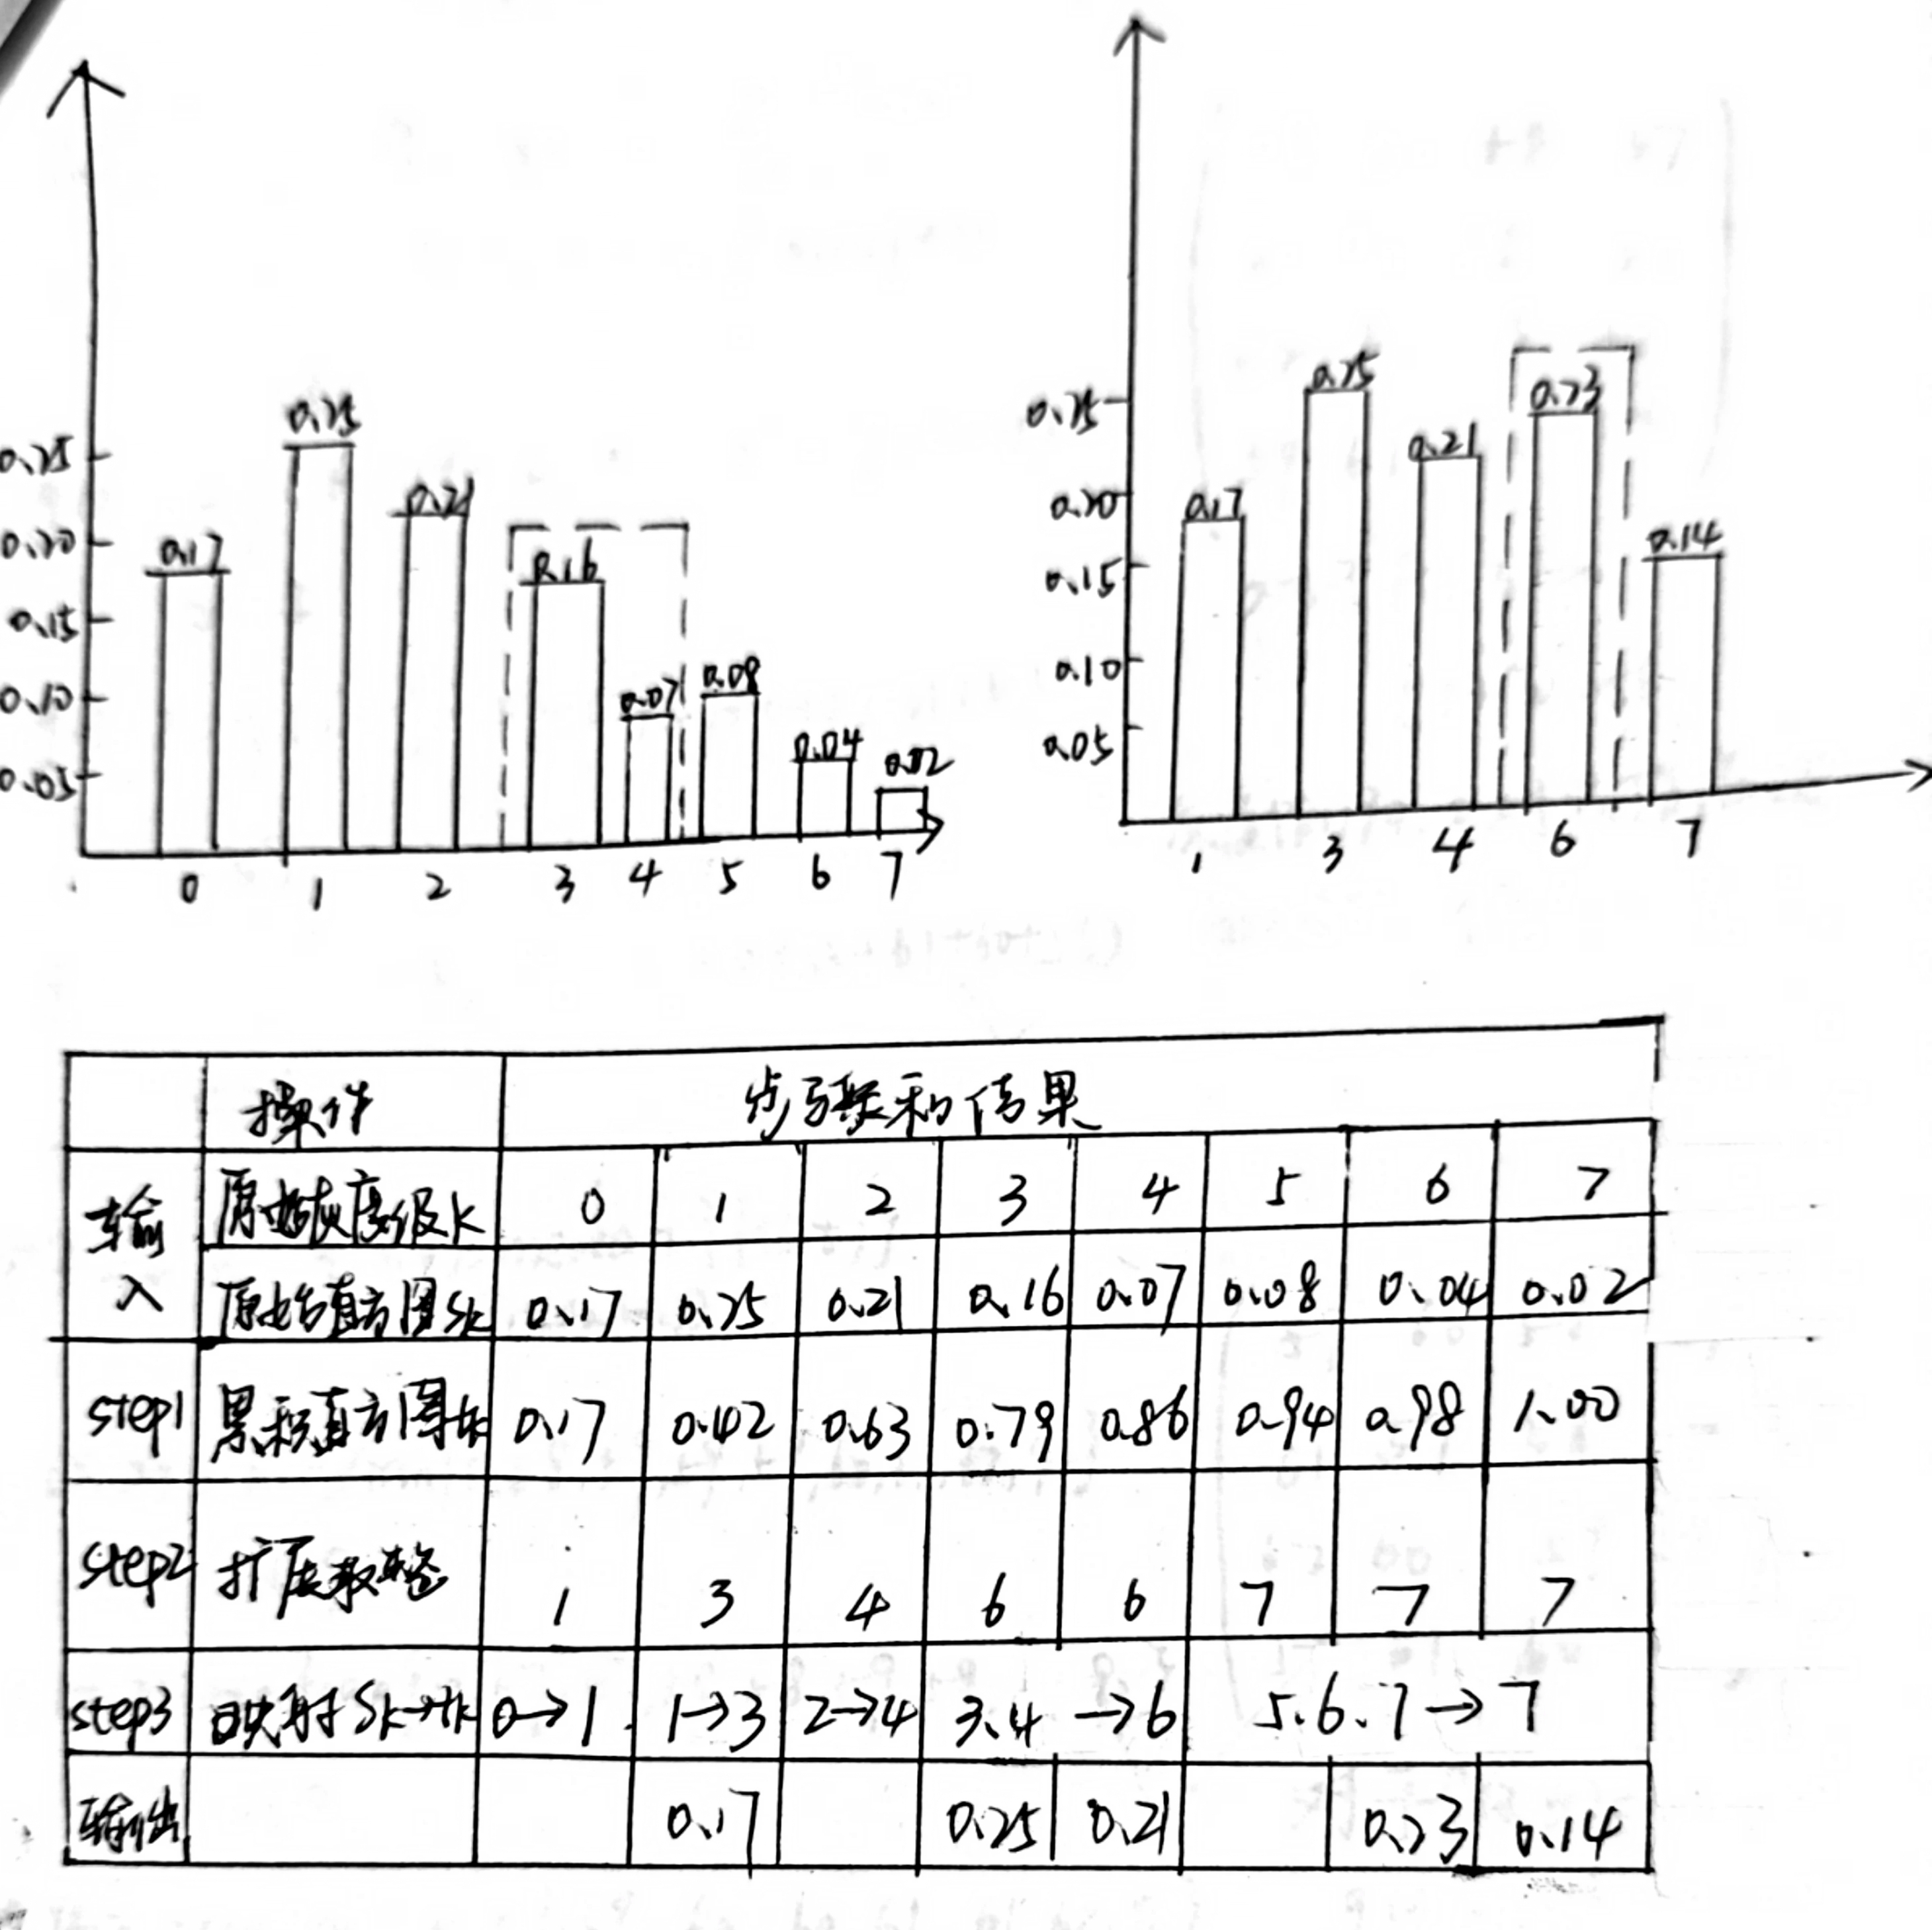 0.25
0.20
0.15
0.10
0.05
0.17
0.25
0.21
0.16
0.07
0.08
0.04
0.02
0 1 2 3 4 5 6 7
0.25
0.20
0.15
0.10
0.05
0.17
0.25
0.21
0.23
0.14
1 3 4 6 7
操作 步骤和结果
输入 原始灰度级k 0 1 2 3 4 5 6 7
原始直方图Sk 0.17 0.25 0.21 0.16 0.07 0.08 0.04 0.02
step1 累积直方图tk 0.17 0.42 0.63 0.79 0.86 0.94 0.98 1.00
step2 扩展取整 1 3 4 6 6 7 7 7
step3 映射Sk→tk 0→1 1→3 2→4 3.4→6 5.6.7→7
输出 0.17 0.25 0.21 0.23 0.14